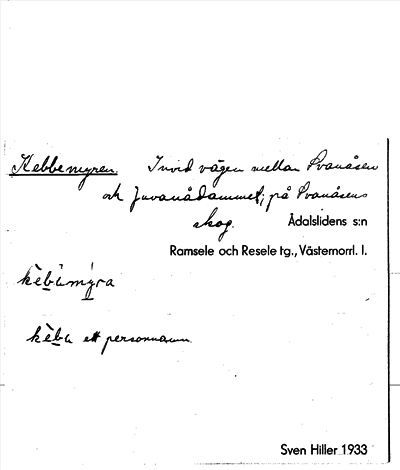 Kebbemyren. Invid vägen mellan Svanåsen
och Juvanådammet; på Svanåsens
skog. Ådalslidens s:n
Ramsele och Resele tg., Västernorrl. l.
kèbamýra
kèba ett personnamn.
Sven Hiller 1933